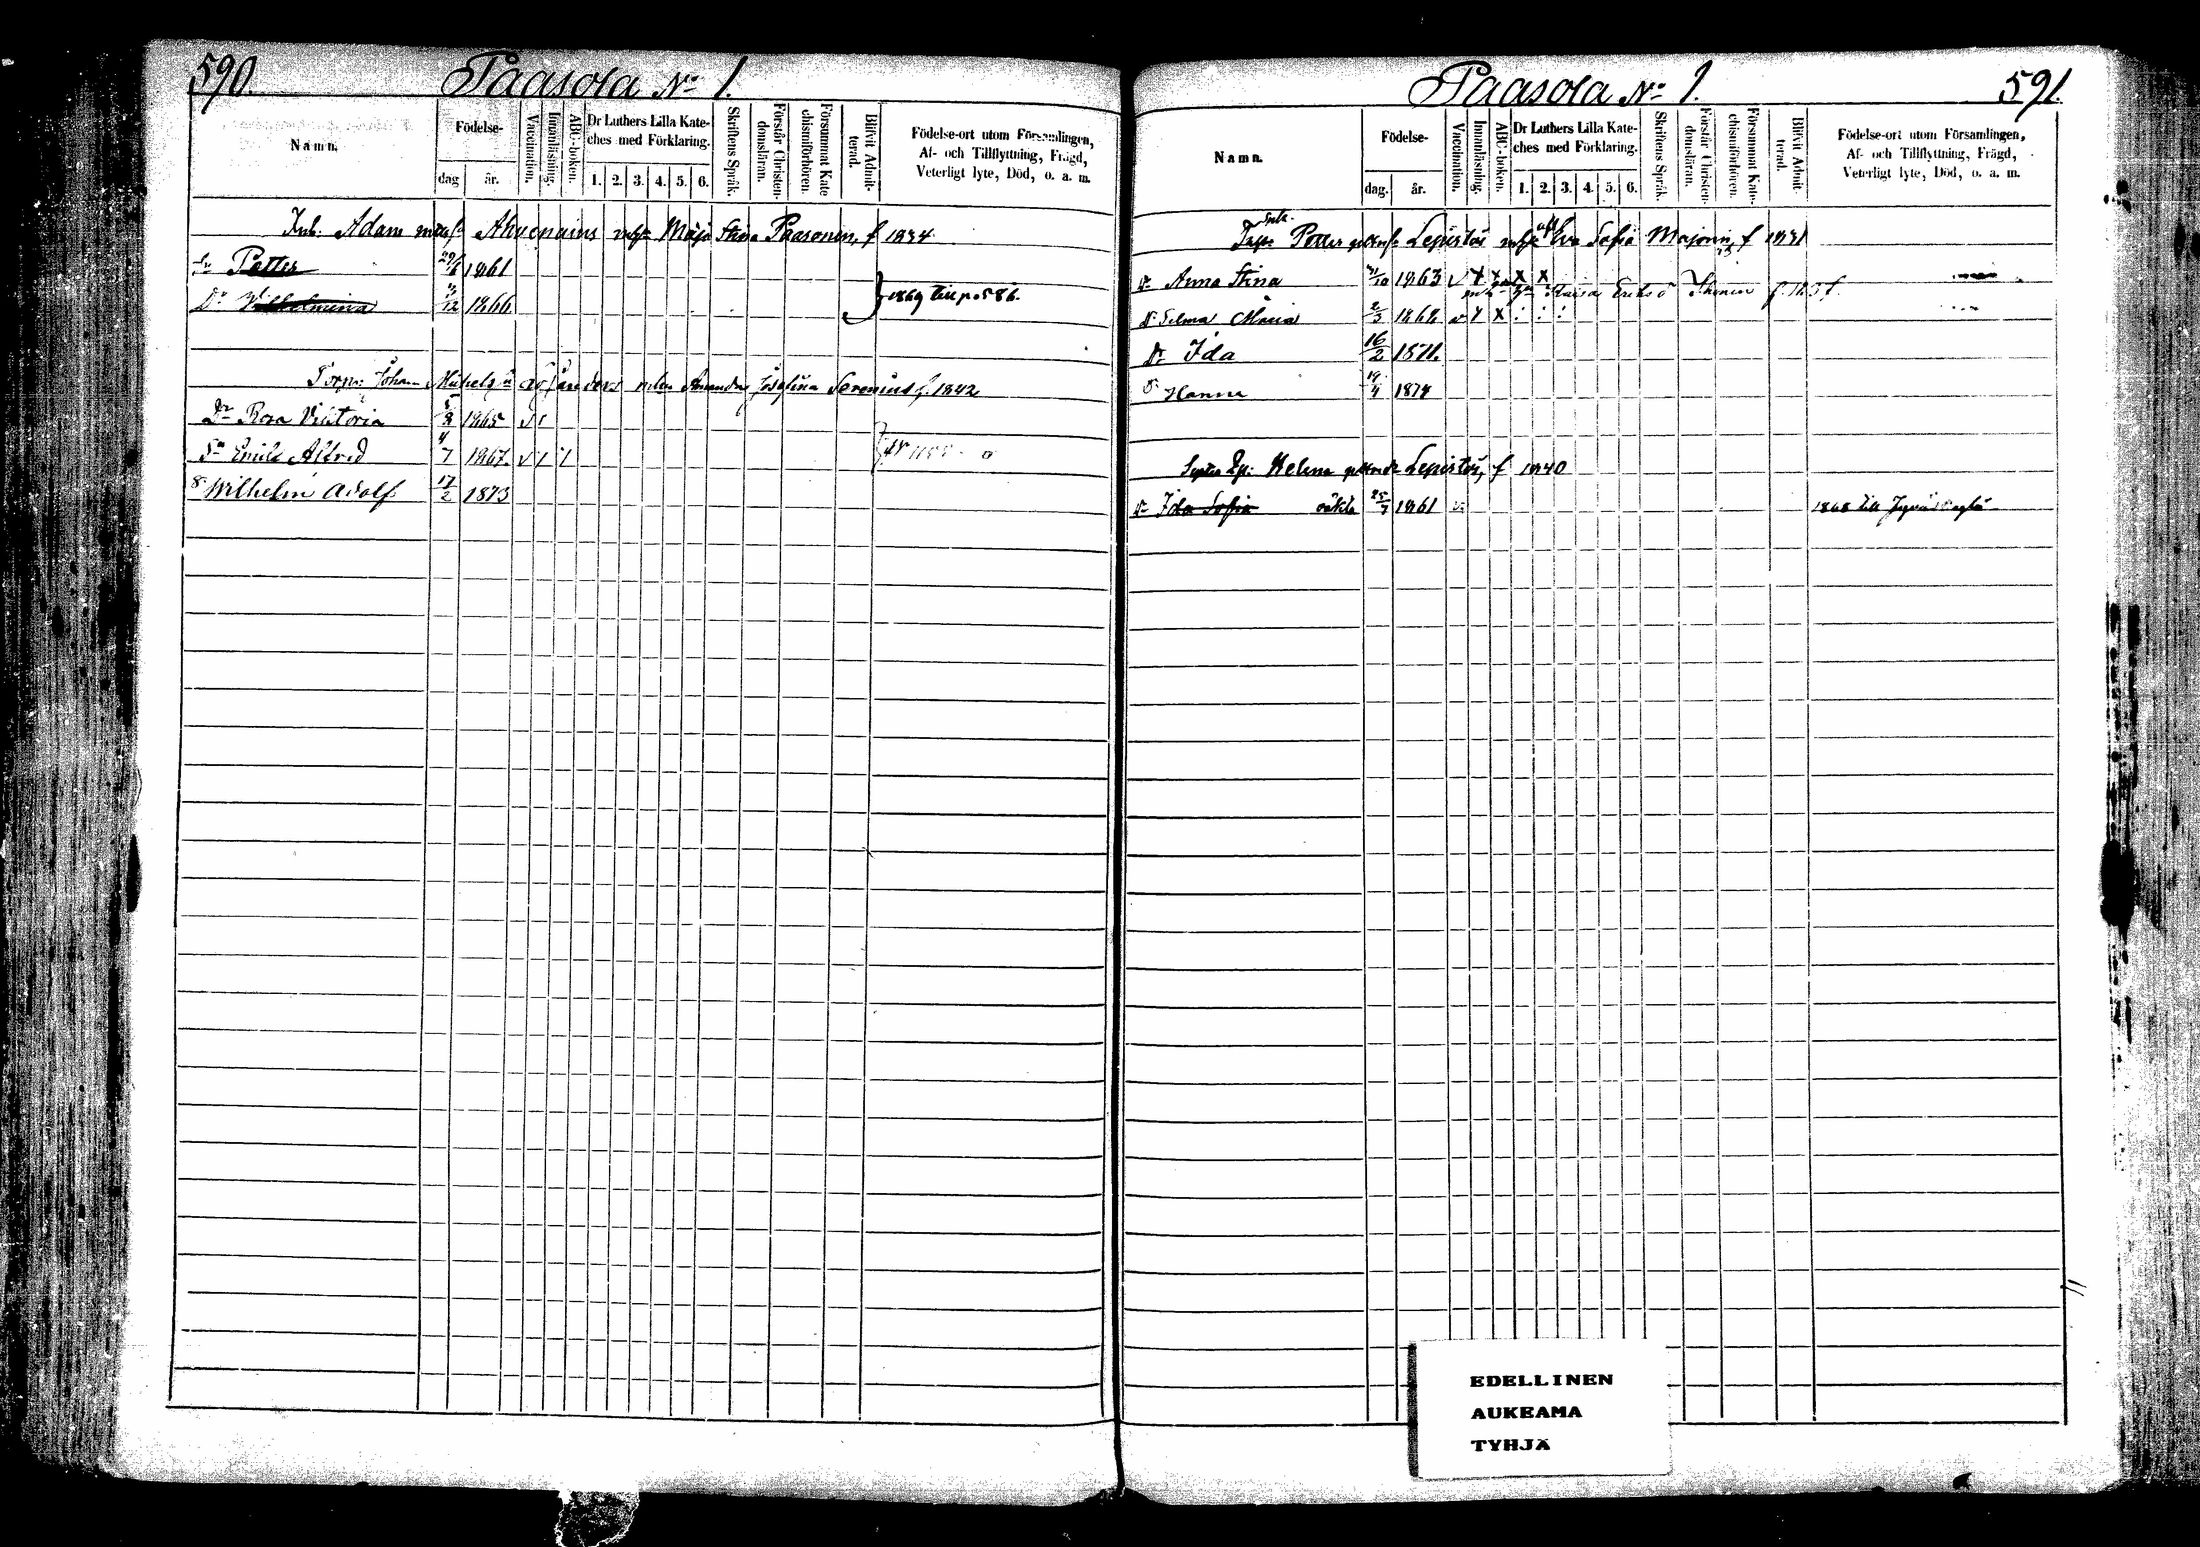 590. Paasola No 1.
Namn.
Födelse-
dag
år.
Vaccination.
Innanläsning.
ABC-boken.
Dr Luthers Lilla Kate-
ches med Förklaring.
1. 2. 3. 4. 5. 6.
Skriftens Språk.
Förstår Christen-
domsläran.
Försummat Kate
chismiförhören.
Blifvit Admit-
terad.
Födelse-ort utom Församlingen,
Af- och Tillflyttning, Frägd,
Veterligt lyte, Död, o. a. m.
Inh. Adam Ahvenainus Maja Stina Paasonen, f 1834
Petter 1861
Dr Wilhelmina 12 1866 1869 till p. 586.
Torp. Johan Amanda Josefina Serenius f. 1842
Dr Rosa Viktoria 5/8 1865
Sn Emil Alfred 4/7 1867
Wilhelm Adolf 17/2 1873
Paasola No 1. 591.
Namn.
Födelse-
dag.
år.
Vaccination.
Innanläsning.
ABC-boken.
Dr Luthers Lilla Kate-
ches med Förklaring.
1. 2. 3. 4. 5. 6.
Skriftens Språk.
Förstår Christen-
domsläran.
Försummat Kate-
chismiförhören.
Blifvit Admit-
terad.
Födelse-ort utom Församlingen,
Af- och Tillflyttning, Frägd,
Veterligt lyte, Död, o. a. m.
Petter Lepistöi Eva Sofia f 1831
Dr Anna Stina 1863
Kaisa
Dr Selma Maria 2/3 1868
Dr Ida 16/2 1871.
Hanna 19/4 1874
Helena Lepistöi, f 1840
Dr Ida Sofia oäkta 25/7 1861 1868 till
EDELLINEN
AUKEAMA
TYHJÄ